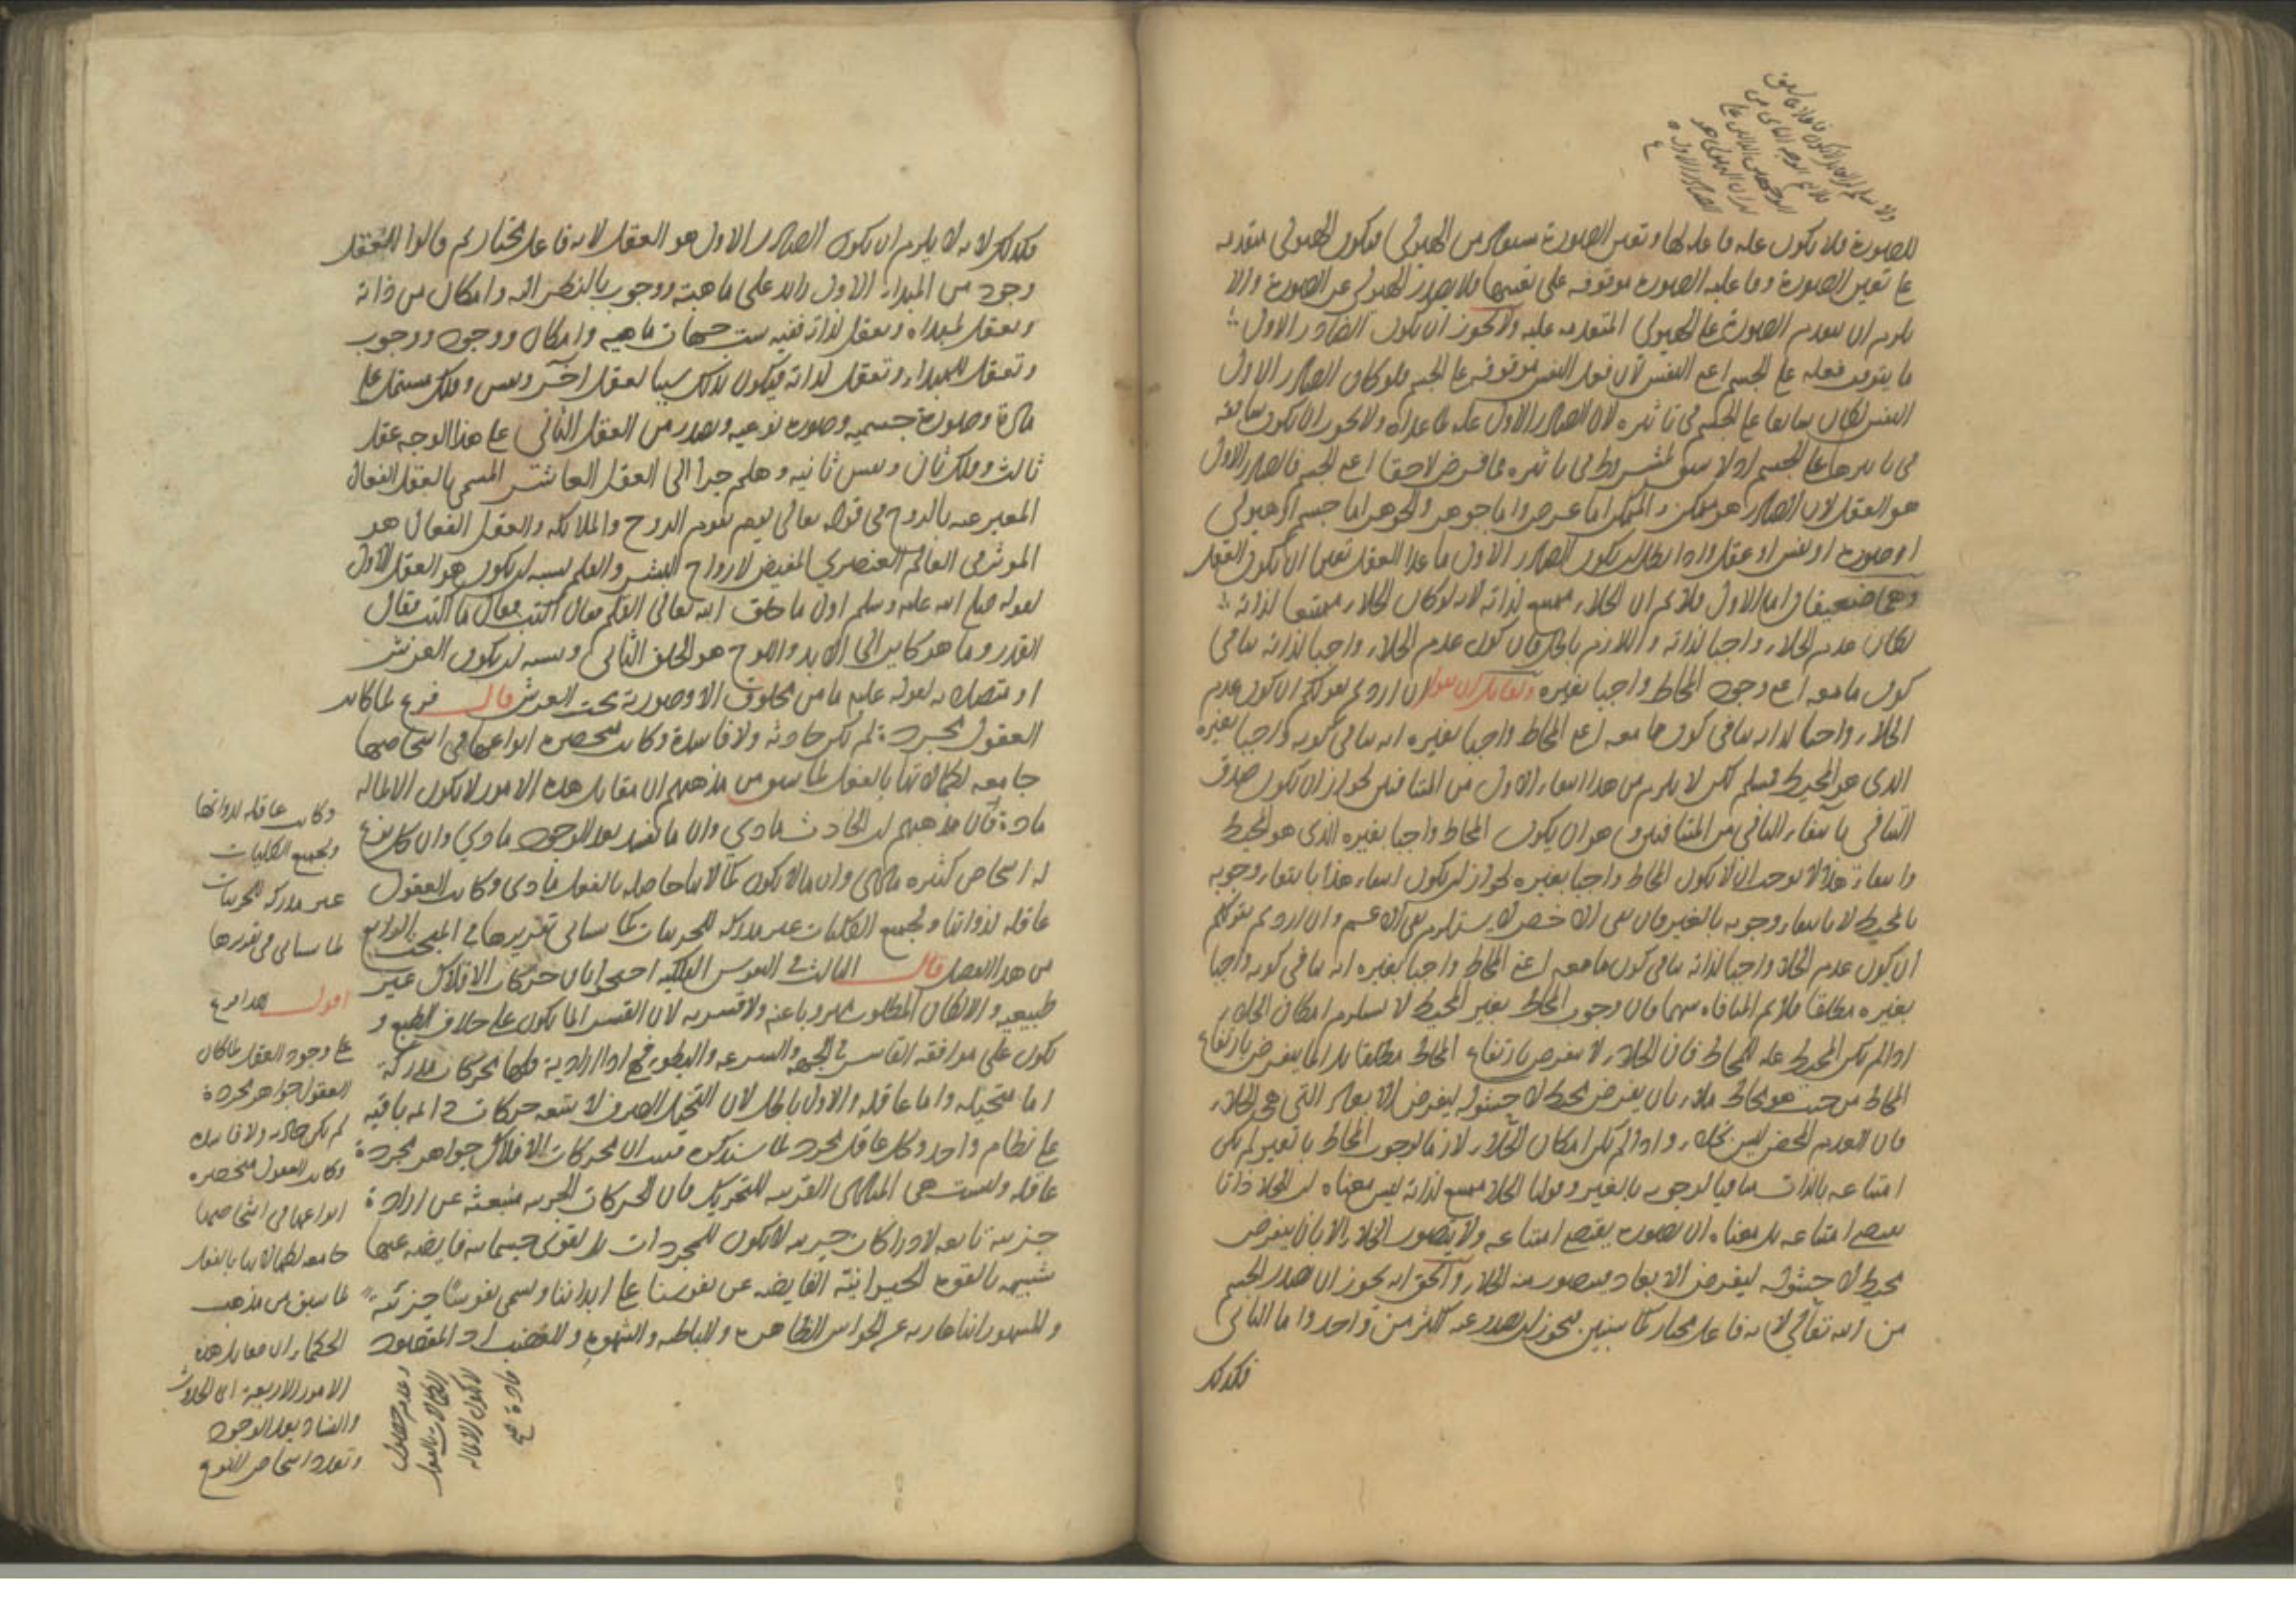 للصورة فلا يكون علة فاعلة لها وتعين الصورة مستفاد من الهيولى فيكون الهيولى متقدمة
على تعين الصورة وفاعلية الصورة موقوفة على تعينها فلا يصدر الهيولى عن الصورة والا
يلزم ان يتقدم الصورة على الهيولى المتقدمة عليه ولا يجوز ان يكون الصادر الاول
ما يتوقف فعله على الجسم اعني النفس لان فعل النفس موقوف على الجسم فلو كان الصادر الاول
النفس لكان سابقا على الجسم في تاثيره لان الصادر الاول علة لما عداه ولا يجوز ان يكون سابقة
في تاثيرها على الجسم اذ لا سبق لمشروط في تاثيره بما فرض لاحقا اعني الجسم فالصادر الاول
هو العقل لان الصادر هو ممكن والممكن اما عرض واما جوهر والجوهر اما جسم او هيولى
او صورة او نفس او عقل واذا بطل ان يكون الصادر الاول ما عدا العقل تعين ان يكون العقل
وهما ضعيفان اما الاول فلانم ان الخلاء ممتنع لذاته لانه لو كان الخلاء ممتنعا لذاته
لكان عدم الخلاء واجبا لذاته واللازم باطل فان كون عدم الخلاء واجبا لذاته ينافي
كون ما معه اعني وجود المحاط واجبا بغيره ولقائل ان يقول ان اردتم بقولكم ان كون عدم
الخلاء واجبا لذاته ينافي كون ما معه اعني المحاط واجبا بغيره انه ينافي كونه واجبا بغيره
الذى هو المحيط فمسلم لكن لا يلزم من هذا انتفاء الاول من المتنافيين لجواز ان يكون صدق
التنافي بانتفاء الثاني من المتنافيين وهو ان يكون المحاط واجبا بغيره الذي هو المحيط
وانتفاء هذا لا يوجب ان لا يكون المحاط واجبا بغيره لجواز ان يكون انتفاء هذا بانتفاء وجوبه
بالمحيط لا بانتفاء وجوبه بالغير فان نفي الاخص لا يستلزم نفي الاعم وان اردتم بقولكم
ان يكون عدم الخلاء واجبا لذاته ينافي كون ما معه اعني المحاط واجبا بغيره انه ينافي كونه واجبا
بغيره مطلقا فلانم المنافاة بينهما فان وجوب المحاط بغير المحيط لا يستلزم امكان الخلاء
اذ لم يكن المحيط علة للمحاط فان الخلاء لا يفرض بارتفاع المحاط مطلقا بل انما يفرض بارتفاع
المحاط من حيث هو محاط ملاء بان يفرض محيط لا حشو له ليفرض الابعاد التي هي الخلاء
فان العدم المحض ليس بخلاء واذا لم يكن امكان الخلاء لازما لوجوب المحاط بالغير لم يكن
امتناعه بالذات منافيا لوجوبه بالغير وقولنا الخلاء ممتنع لذاته ليس معناه ان للخلاء ذاتا
يقتضي امتناعه بل معناه ان تصوره يقتضي امتناعه ولا يتصور الخلاء الا بان يفرض
محيط لا حشو له ليفرض الابعاد فيتصور منه الخلاء والحق انه يجوز ان يصدر الجسم
من الله تعالى لانه فاعل مختار كما سنبين فيجوز ان يصدر عنه اكثر من واحد واما الثاني
فكذلك
فكذلك لانه لا يلزم ان يكون الصادر الاول هو العقل لانه فاعل مختار ثم قالوا للعقل
وجود من المبداء الاول زائد على ماهيته ووجوب بالنظر اليه وامكان من ذاته
وتعقل لمبداه وتعقل لذاته ففيه ست جهات ماهية وامكان ووجود ووجوب
وتعقل للمبداء وتعقل لذاته فيكون لذلك سببا لعقل آخر ونفس وفلك مشتمل على
مادة وصورة جسمية وصورة نوعية ويصدر من العقل الثاني على هذا الوجه عقل
ثالث وفلك ثان ونفس ثانية وهلم جرا الى العقل العاشر المسمى بالعقل الفعال
المعبر عنه بالروح في قوله تعالى يوم يقوم الروح والملائكة والعقل الفعال هو
الموثر في العالم العنصري المفيض لارواح البشر والقلم يشبه ان يكون هو العقل الاول
لقوله صلى الله عليه وسلم اول ما خلق الله تعالى القلم فقال اكتب فقال ما اكتب فقال
القدر وما هو كاين الى الابد واللوح هو الخلق الثاني ويشبه ان يكون العرش
او متصلا به لقوله عليه ما من مخلوق الا وصورته تحت العرش قال فرع لما كانت
العقول مجردة لم تكن حادثة ولا فاسدة وكانت منحصرة انواعها في اشخاصها
جامعة لكمالاتها بالفعل لما سبق من مذهبهم ان مقابل هذه الامور لا يكون الا لما له
مادة فان مذهبهم ان الحادث مادي وان ما يفسد بعد الوجود مادي وان كل نوع
له اشخاص كثيرة مادي وان ما لا يكون كمالاتها حاصلة بالفعل مادى وكانت العقول
عاقلة لذواتها ولجميع الكليات غير مدركة للجزئيات كما سياتي تقريرها في المبحث الرابع
من هذا الفصل قال الثالث في النفوس الفلكية احتجوا بان حركات الافلاك غير
طبيعية والا لكان المطلوب مهروبا عنه ولا قسرية لان القسر انما يكون على خلاف الطبع و
تكون على موافقة القاسر في الجهة والسرعة والبطوء فهي اذا ارادية فلها محركات مدركة
اما متخيلة واما عاقلة والاول باطل لان التخيل الصرف لا يتبعه حركات دائمة باقية
على نظام واحد وكل عاقل مجرد لما سنذكره فثبت ان محركات الافلاك جواهر مجردة
عاقلة وليست هي المبادى القريبة للتحريك فان الحركات الجزئية منبعثة عن ارادة
جزئية تابعة لادراكات جزئية لا يكون للمجردات بل لقوى جسمانية فايضة عنها
شبيهة بالقوة الحيوانية الفايضة عن نفوسنا على ابداننا وتسمى نفوسا جزئية
والمشهور انها عارية عن الحواس الظاهرة والباطنة والشهوة والغضب اذ المقصود
وكانت عاقلة لذواتها
ولجميع الكليات
غير مدركة للجزئيات
لما سياتى في تقريرها
اقول هذا فرع
على وجود العقل لما كان
العقول جواهر مجردة
لم يكن حادثة ولا فاسدة
وكانت العقول منحصرة
انواعها في اشخاصها
جامعة لكمالاتها بالفعل
لما سبق من مذهب
الحكماء ان مقابل هذه
الامور الاربعة اى الحدوث
والفساد بعد الوجود
وتعدد اشخاص النوع
وعدم حصول
الكمالات بالفعل
لا يكون الا لما له
مادة صح